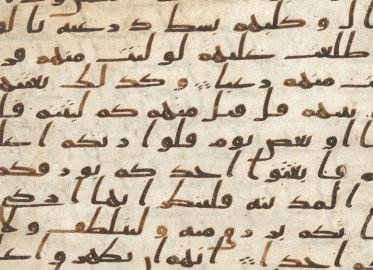 ل و كلبهم بسط ذرعيه بالو
طلعت عليهم لوليت منهم فر
ت منهم رعبا و كذلك بعثنهم
بينهم قل قيل منهم كم لبثتم قا
ا او بعض يوم قلوا ربكم اعلم
م فابعثوا احدكم بورقكم
المدينه فلينظر ايها ازكى
تكم برزق منه و ليتلطف ولا
كم احدا انهم ان يظهروا